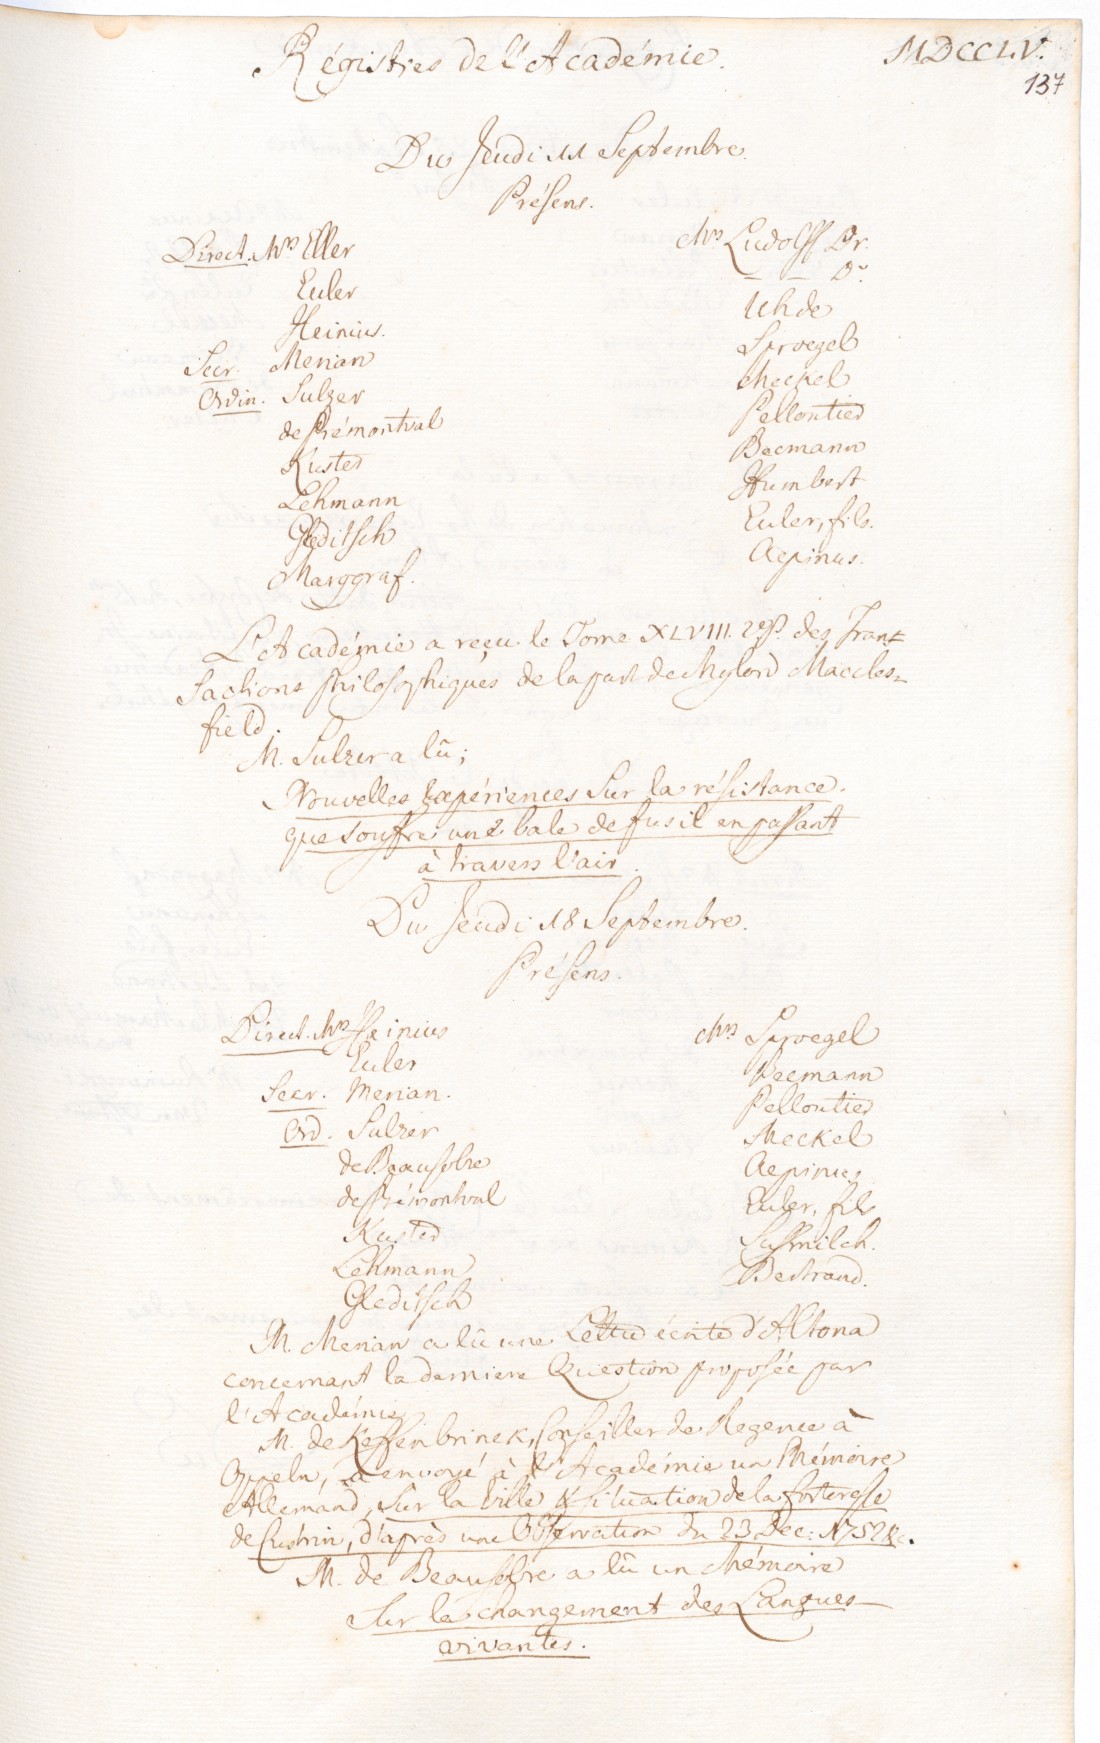 Régistres de l'Académie.
MDCCLV.
137
Du Jeudi 11 Septembre.
Présens.
Direct. Mrs Eller
Euler
Heinius.
Secr. Merian
Ordin. Sulzer
de Prémontval
Kuster
Lehmann
Gleditsch
Marggraf.
Mrs Ludolff Dr.
— — Dr
Uhde
Sproegel
Meckel
Pelloutier
Becmann
Humbert
Euler, fils.
Aepinus.
L'Académie a reçu le Tome XLVIII. des Tran=
sactions philosophiques de la part de Mylord Maccles=
field.
M. Sulzer a lû;
Nouvelles Expériences sur la résistance.
que souffre une bale de fusil en passant
à travers l'air.
Du Jeudi 18 Septembre.
Présens.
Direct. Mrs Heinius
Euler
Secr. Merian.
Ord. Sulzer
de Beausobre
de Prémontval
Kuster
Lehmann
Gleditsch
Mrs Sproegel
Becmann
Pelloutier
Meckel
Aepinus
Euler, fils
Sussmilch.
Bertrand.
M. Merian a lû une Lettre écrite d'Altona
concernant la derniere Question proposée par
l'Académie.
M. de Keffenbrinck, Conseiller de Regence à
Oppeln, a envoyé à l'Académie un Mémoire
Allemand, sur la Ville & situation de la forteresse
de Custrin, d'après une Observation du 23 Dec: 1752 &c.
M. de Beausobre a lû un Mémoire
Sur le changement des Langues
vivantes.